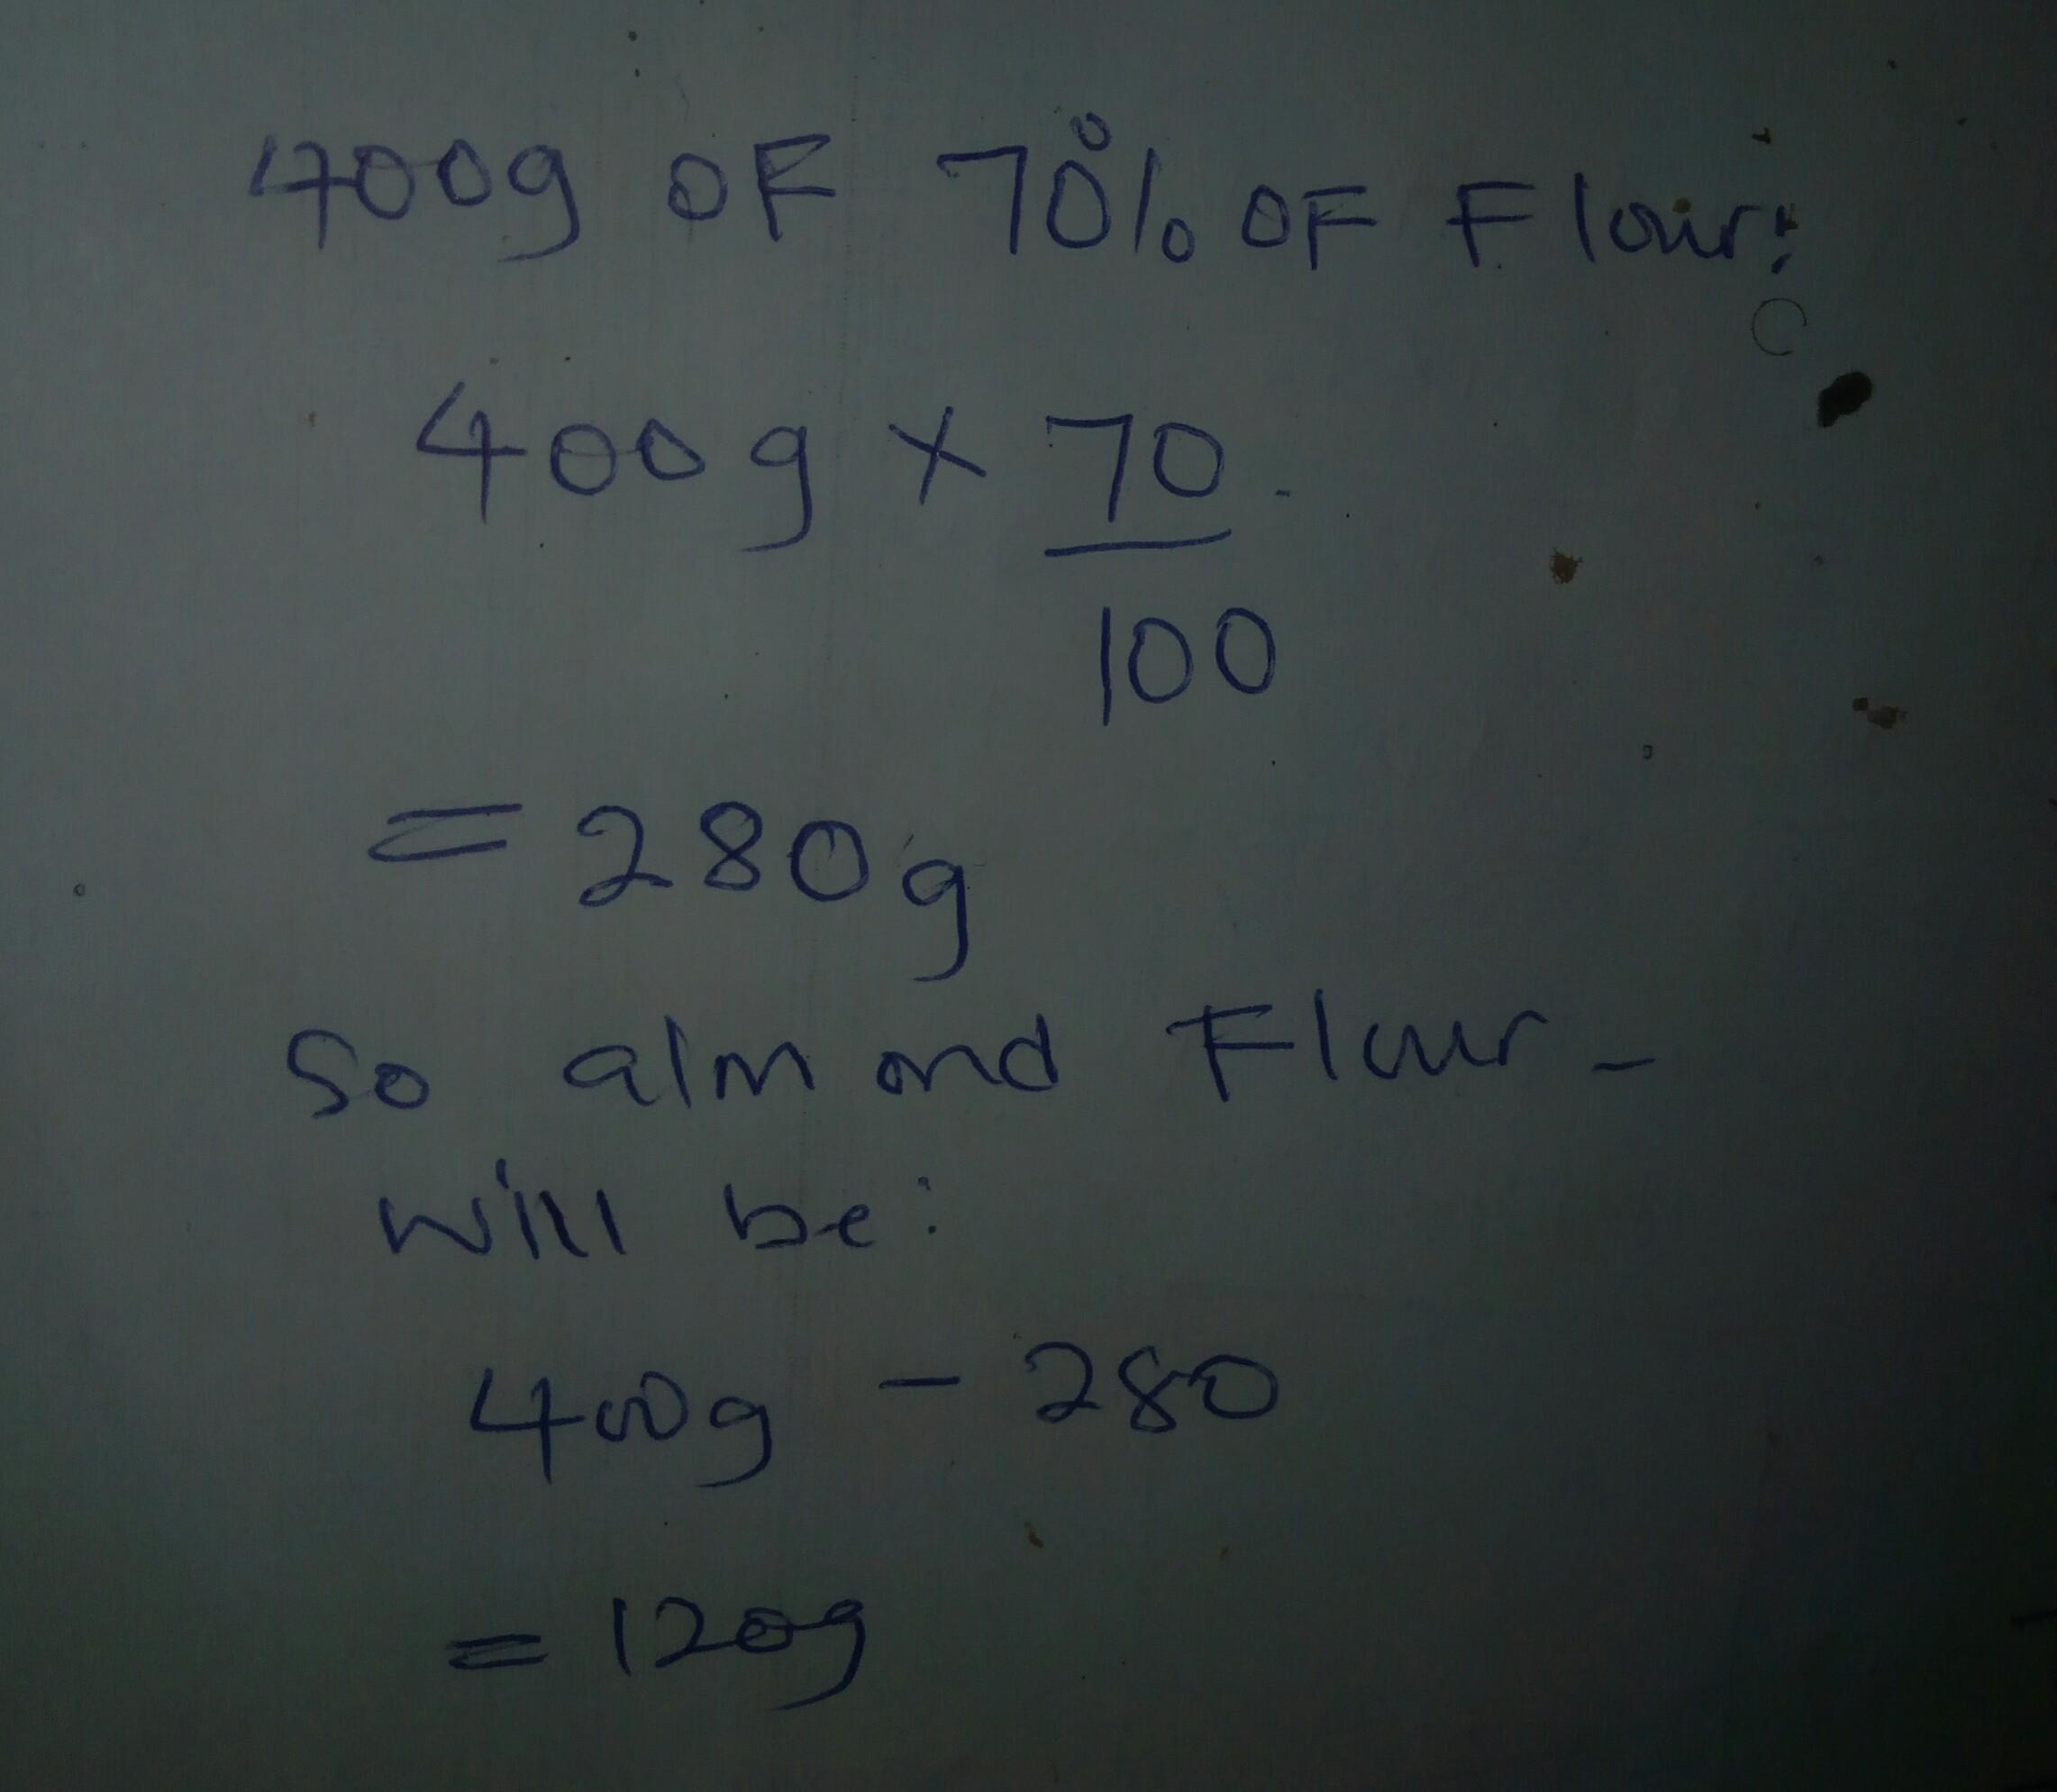 400g OF 70% OF Flour:
400g × 70
100
= 280g
So almond Flour -
will be:
400g - 280
= 120g